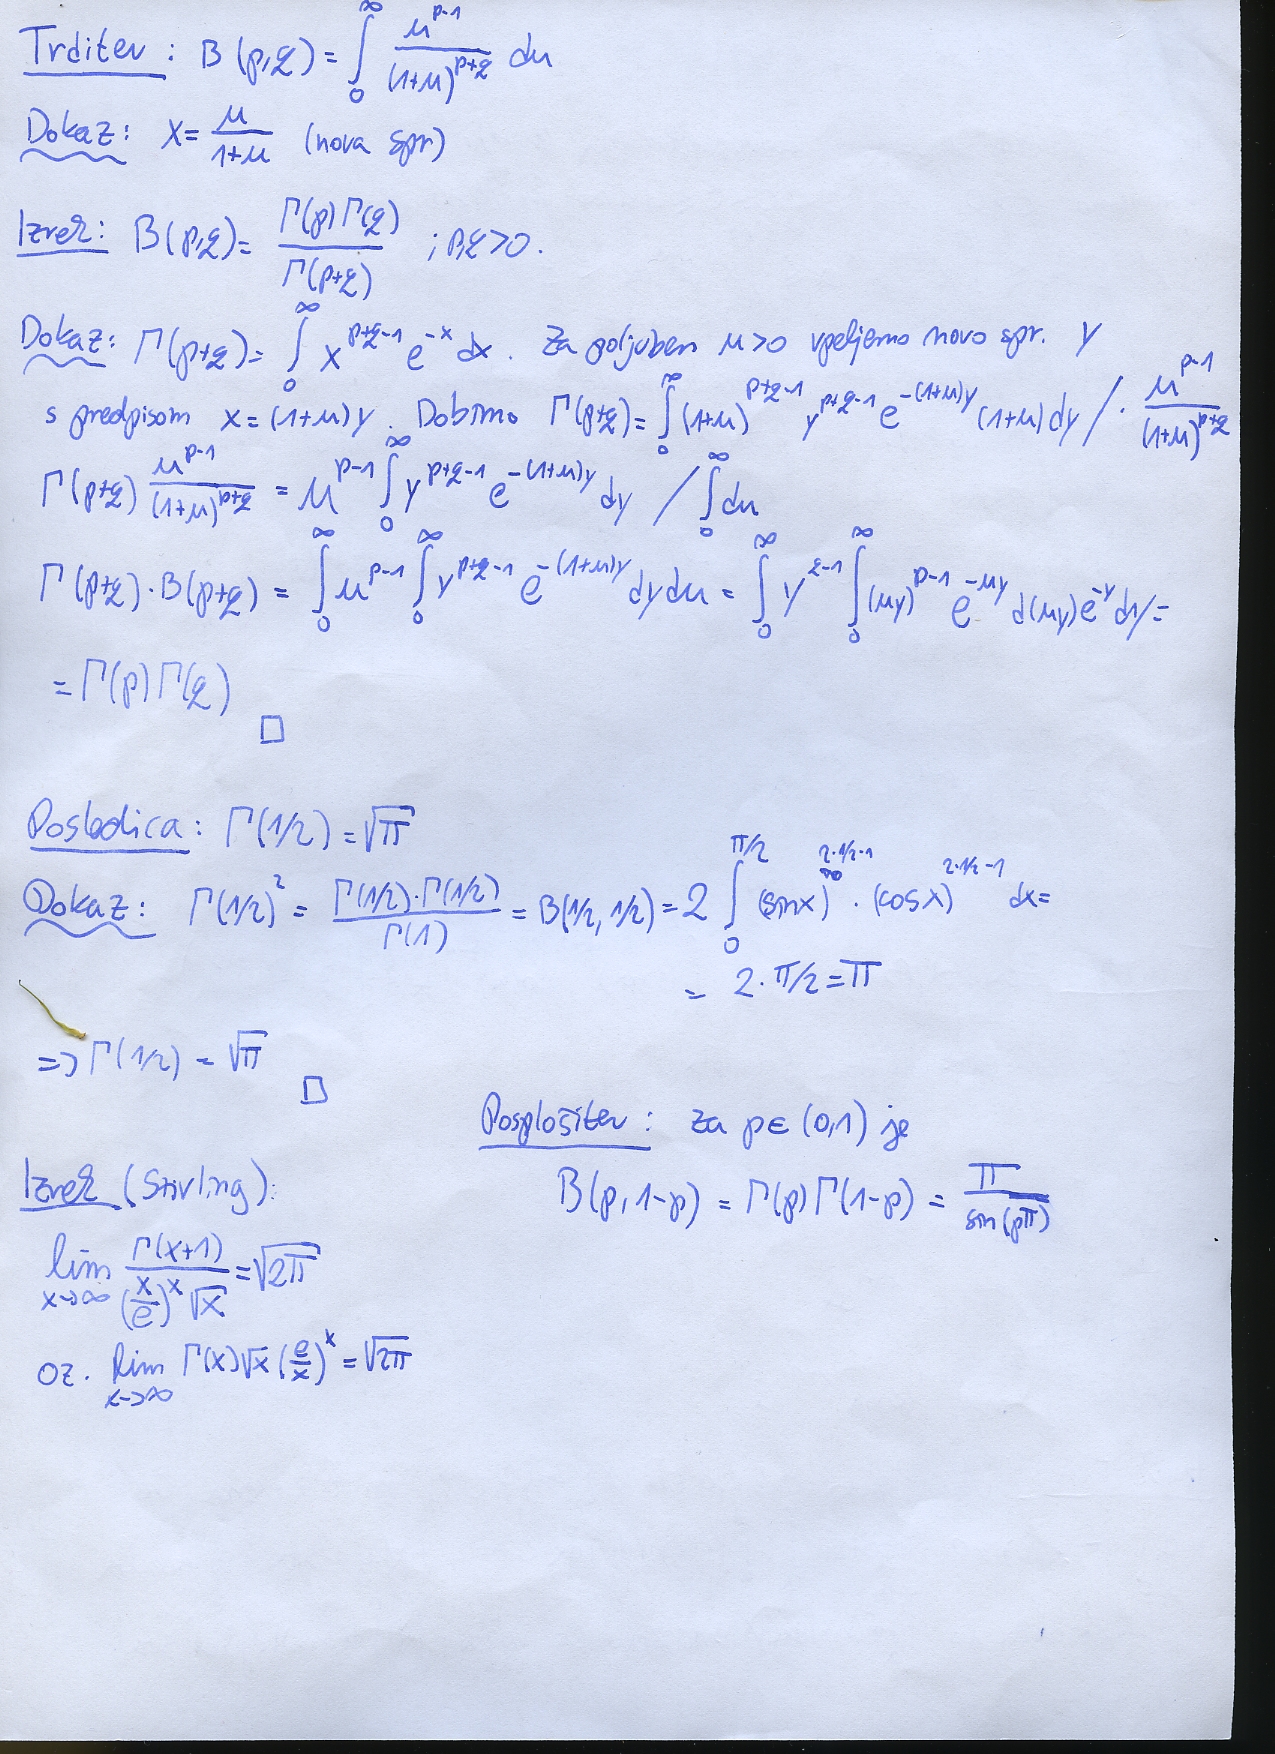 Trditev: B(p,q) = ∫₀^∞ u^{p-1}/(1+u)^{p+q} du
Dokaz: x = u/(1+u) (nova spr)
Izrek: B(p,q) = Γ(p)Γ(q)/Γ(p+q) ; p,q>0.
Dokaz: Γ(p+q) = ∫₀^∞ x^{p+q-1} e^{-x} dx. Za poljuben u>0 vpeljemo novo spr. y
s predpisom x=(1+u)y. Dobimo Γ(p+q) = ∫₀^∞ (1+u)^{p+q-1} y^{p+q-1} e^{-(1+u)y} (1+u)dy / · u^{p-1}/(1+u)^{p+q}
Γ(p+q) u^{p-1}/(1+u)^{p+q} = u^{p-1} ∫₀^∞ y^{p+q-1} e^{-(1+u)y} dy / ∫₀^∞ du
Γ(p+q)·B(p+q) = ∫₀^∞ u^{p-1} ∫₀^∞ y^{p+q-1} e^{-(1+u)y} dy du = ∫₀^∞ y^{q-1} ∫₀^∞ (uy)^{p-1} e^{-uy} d(uy) e^{-y} dy =
= Γ(p)Γ(q) □
Posledica: Γ(1/2) = √π
Dokaz: Γ(1/2)² = Γ(1/2)·Γ(1/2)/Γ(1) = B(1/2, 1/2) = 2 ∫₀^{π/2} (sinx)^{2·1/2-1} · (cosx)^{2·1/2-1} dx =
= 2·π/2 = π
=> Γ(1/2) = √π □
Posplošitev: za p∈(0,1) je
B(p,1-p) = Γ(p)Γ(1-p) = π/sin(pπ)
Izrek (Stirling):
lim_{x→∞} Γ(x+1)/((x/e)^x √x) = √2π
oz. lim_{x→∞} Γ(x)√x (e/x)^x = √2π